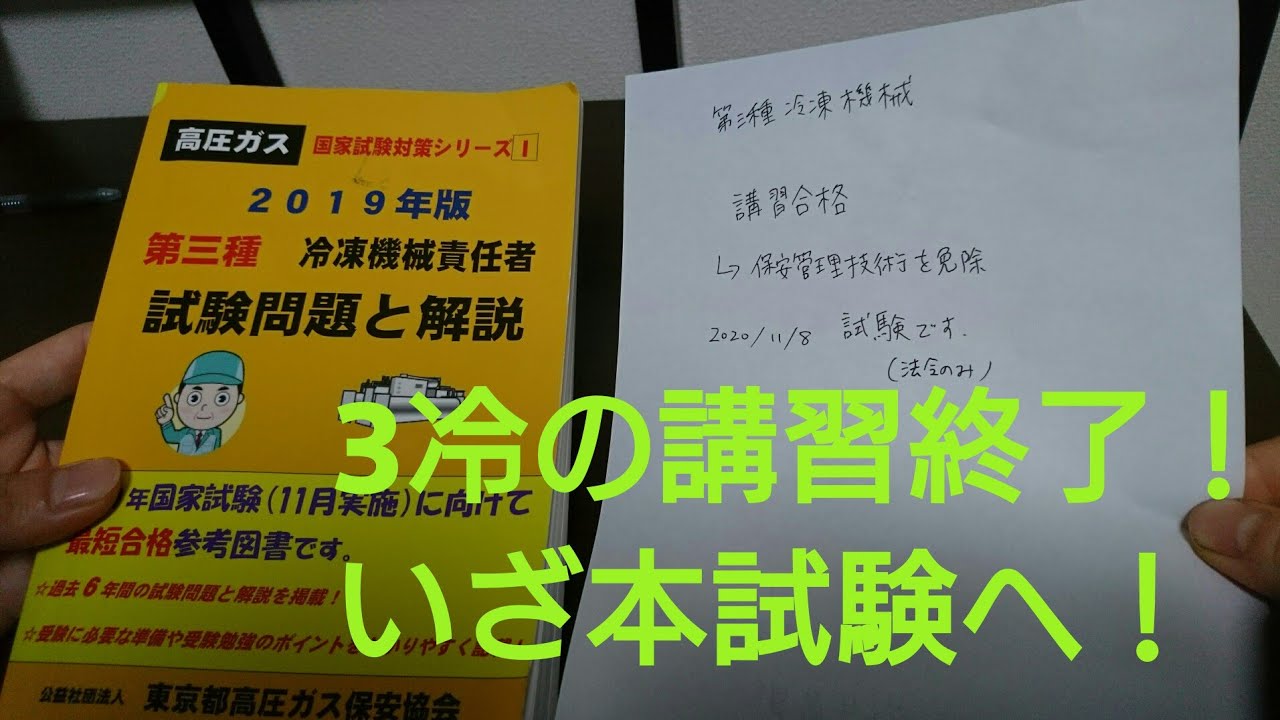 高圧ガス 国家試験対策シリーズ1
2019年版
第三種 冷凍機械責任者
試験問題と解説
年国家試験(11月実施)に向けて
最短合格参考図書です。
☆過去6年間の試験問題と解説を掲載！
☆受験に必要な準備や受験勉強のポイントを
りやすく
公益社団法人 東京都高圧ガス保安協会
第三種 冷凍機械
講習合格
↳ 保安管理技術を免除
2020/11/8 試験です.
(法令のみ)
3冷の講習終了！
いざ本試験へ！